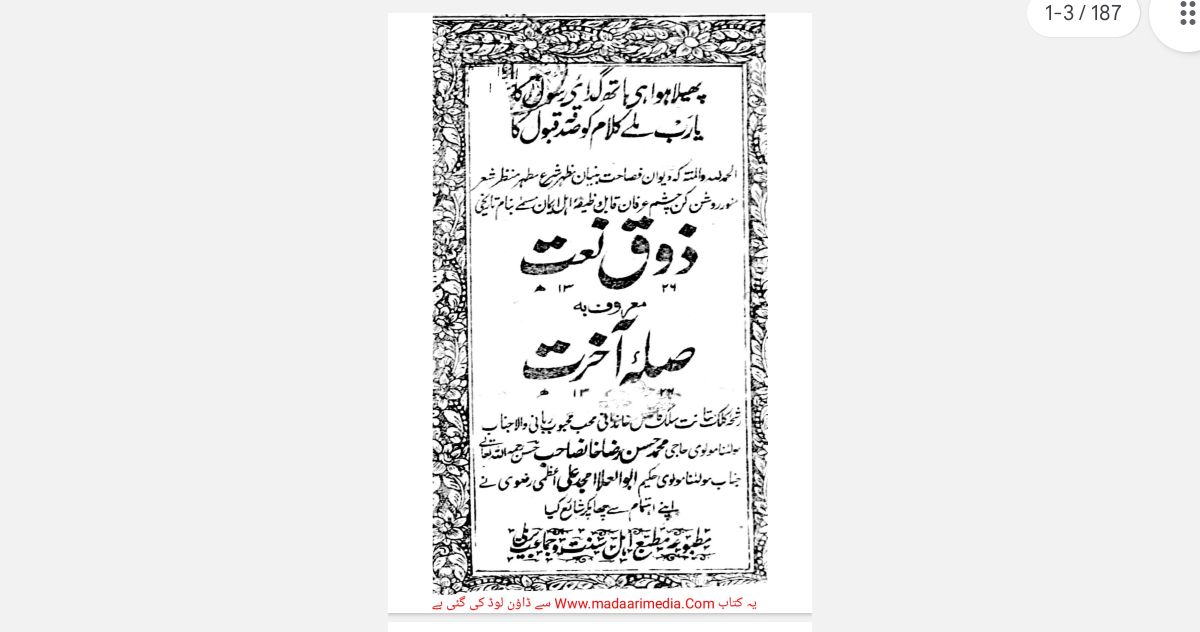 1-3 / 187
پھیلا ہوا ہی ہاتھ گدای رسول کا
یارب ملے کلام کو صدقہ قبول کا
الحمد للہ والمنۃ کہ دیوان فصاحت بنیان مظہر شرع مطہر منظر شعر
منور روشن کن چشم عرفان قابل وظیفۂ اہل ایمان مسمے بنام تاریخی
ذوق نعت
۱۳ ۲۶ ھ
معروف بہ
صلۂ آخرت
۱۳ ۲۶ ھ
رشحۂ کلک سلک خاندانی محب محبوب ربانی والا جناب
مولٰنا مولوی حاجی محمد حسن رضا خانصاحب حسن رحمۃ اللہ تعالیٰ نے
جناب مولٰنا مولوی حکیم ابو العلا امجد علی اعظمی رضوی نے
اپنے اہتمام سے چھاپکر شائع کیا
مطبوعہ مطبع اہل سنت و جماعت بریلی
یہ کتاب Www.madaarimedia.Com سے ڈاؤن لوڈ کی گئی ہے